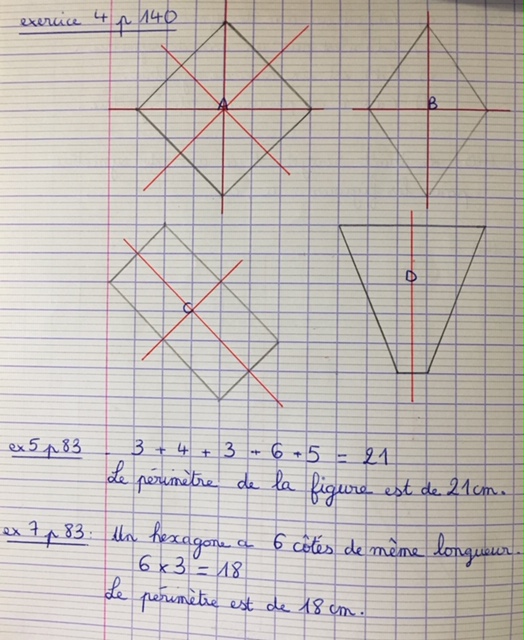 exercice 4 p 140
A
B
C
D
ex 5 p 83 3 + 4 + 3 + 6 + 5 = 21
Le périmètre de la figure est de 21 cm.
ex 7 p 83 : Un hexagone a 6 côtés de même longueur.
6 x 3 = 18
Le périmètre est de 18 cm.